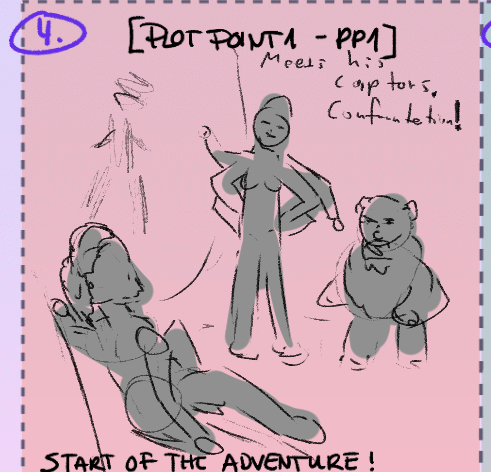 4.
[PLOT POINT 1 - PP1]
Meets his
captors.
Confrontation!
START OF THE ADVENTURE!